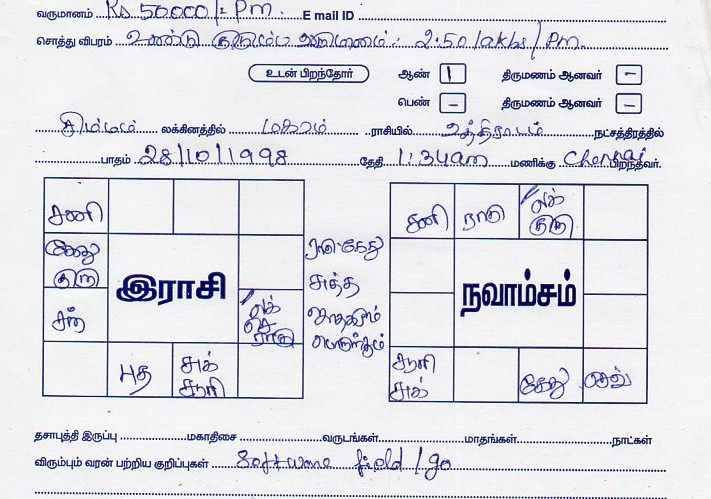 வருமானம் Rs 50000/= Pm. E mail ID
சொத்து விபரம் உண்டு குடும்ப வருமானம் : 2.50 lakhs / Pm.
உடன் பிறந்தோர் ஆண் 1 திருமணம் ஆனவர் -
பெண் - திருமணம் ஆனவர் -
சிம்மம் லக்கினத்தில் மகரம் ராசியில் உத்திராடம் நட்சத்திரத்தில்
பாதம் 28/10/1998 தேதி 1:34am மணிக்கு Chennai பிறந்தவர்.
சனி
கேது
குரு
இராசி
சந்
லக்
செ
ராகு
புத
சுக்
சூரி
ராகு கேது
சுத்த
ஜாதகமும்
பொருந்தும்
சனி ராகு லக்
குரு
நவாம்சம்
சூரி
சுக்
கேது
தசாபுத்தி இருப்பு மகாதிசை வருடங்கள் மாதங்கள் நாட்கள்
விரும்பும் வரன் பற்றிய குறிப்புகள் Software field / go